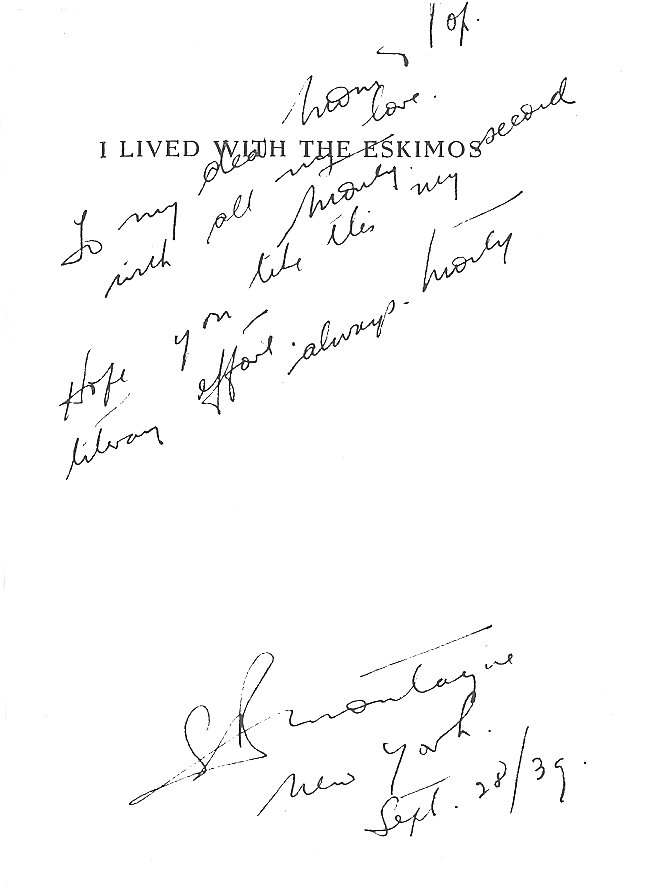 I LIVED WITH THE ESKIMOS
To my dear Pop.
with all my love.
Monty.
Hope you like this my second
literary effort. always. Monty
SR Montague
New York.
Sept. 28/39.